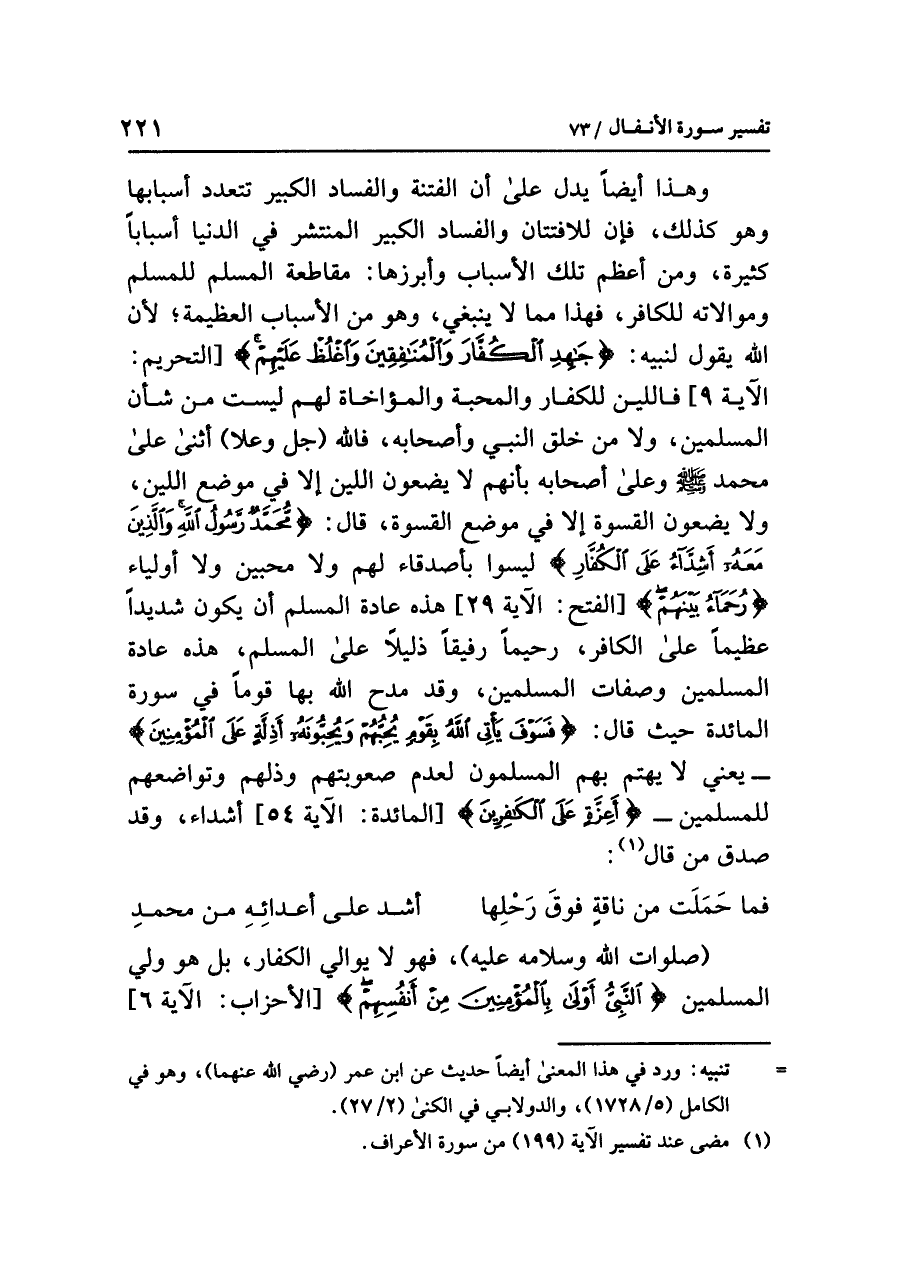 تفسير سـورة الأنـفـال / ٧٣ ٢٢١
وهـذا أيضاً يدل علىٰ أن الفتنة والفساد الكبير تتعدد أسبابها
وهو كذلك، فإن للافتتان والفساد الكبير المنتشر في الدنيا أسباباً
كثيرة، ومن أعظم تلك الأسباب وأبرزها: مقاطعة المسلم للمسلم
وموالاته للكافر، فهذا مما لا ينبغي، وهو من الأسباب العظيمة؛ لأن
الله يقول لنبيه: ﴿ جَٰهِدِ ٱلْكُفَّارَ وَٱلْمُنَٰفِقِينَ وَٱغْلُظْ عَلَيْهِمْۚ ﴾ [التحريم:
الآيـة ٩] فـالليـن للكفـار والمحبـة والمـؤاخـاة لهـم ليسـت مـن شـأن
المسلمين، ولا من خلق النبـي وأصحابه، فالله (جل وعلا) أثنىٰ علىٰ
محمد ﷺ وعلىٰ أصحابه بأنهم لا يضعون اللين إلا في موضع اللين،
ولا يضعون القسوة إلا في موضع القسوة، قال: ﴿ مُّحَمَّدٌ رَّسُولُ ٱللَّهِۚ وَٱلَّذِينَ
مَعَهُۥٓ أَشِدَّآءُ عَلَى ٱلْكُفَّارِ ﴾ ليسوا بأصدقاء لهم ولا محبين ولا أولياء
﴿ رُحَمَآءُ بَيْنَهُمْۖ ﴾ [الفتح: الآية ٢٩] هذه عادة المسلم أن يكون شديداً
عظيماً علىٰ الكافر، رحيماً رفيقاً ذليلاً علىٰ المسلم، هذه عادة
المسلمين وصفات المسلمين، وقد مدح الله بها قوماً في سورة
المائدة حيث قال: ﴿ فَسَوْفَ يَأْتِى ٱللَّهُ بِقَوْمٍ يُحِبُّهُمْ وَيُحِبُّونَهُۥٓ أَذِلَّةٍ عَلَى ٱلْمُؤْمِنِينَ ﴾
ـــ يعني لا يهتم بهم المسلمون لعدم صعوبتهم وذلهم وتواضعهم
للمسلمين ـــ ﴿ أَعِزَّةٍ عَلَى ٱلْكَٰفِرِينَ ﴾ [المائدة: الآية ٥٤] أشداء، وقد
صدق من قال(١):
فما حَمَلَت من ناقةٍ فوقَ رَحْلِها أشـد علـى أعـدائِـهِ مـن محمـدِ
(صلوات الله وسلامه عليه)، فهو لا يوالي الكفار، بل هو ولي
المسلمين ﴿ ٱلنَّبِىُّ أَوْلَىٰ بِٱلْمُؤْمِنِينَ مِنْ أَنفُسِهِمْۖ ﴾ [الأحزاب: الآية ٦]
= تنبيه: ورد في هذا المعنىٰ أيضاً حديث عن ابن عمر (رضي الله عنهما)، وهو في
الكامل (١٧٢٨/٥)، والدولابـي في الكنىٰ (٢٧/٢).
(١) مضى عند تفسير الآية (١٩٩) من سورة الأعراف.